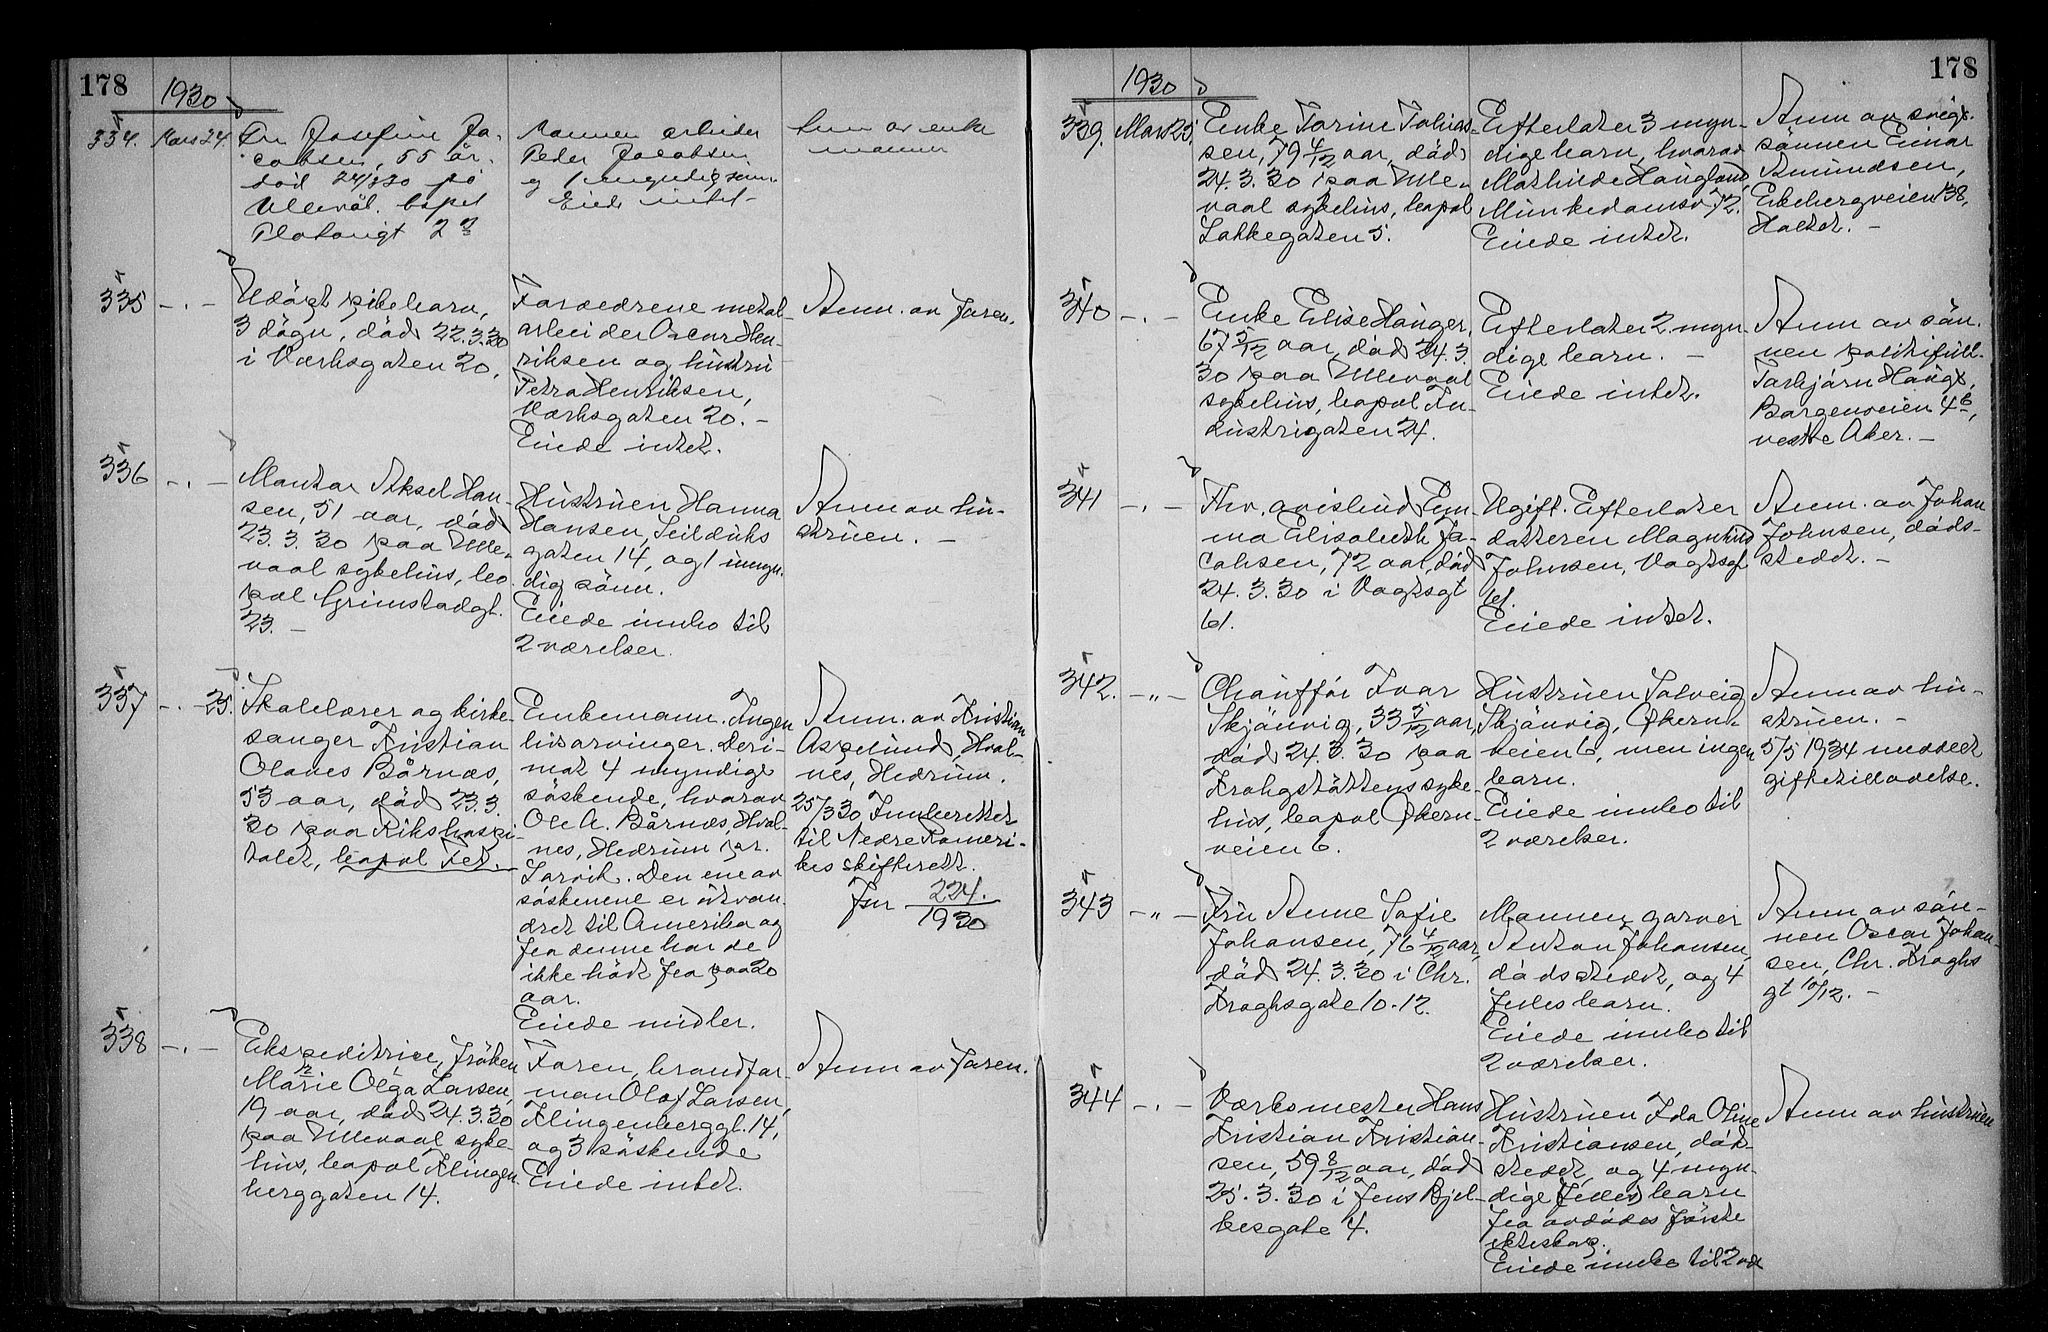 178
1930
334.
Mars 24.
Fru Josefine Ja-
cobsen, 55 år.
död 24/3 30 på
Ullevål. bopel
Platousgt 2
Mannen arbeider
Peder Jacobsen
og 1 umyndig sønn
Eiede intet-
Anm av enke
mannen
335
-.-
Udöpt pikebarn,
3 dögn, död 22.3.30
i Værksgaten 20.
Forældrene metal-
arbeider Oscar Hen-
riksen og hustru
Petra Henriksen,
Værksgaten 20. -
Eiede intet.
Anm. av faren.
336
-.-
Montør Aksel Han-
sen, 51 aar, död
23.3.30 paa Ulle-
vaal sykehus, bo
pæl Grimstadgt.
23. -
Hustruen Hanna
Hansen, Seilduks
gaten 14, og 1 umyn-
dig sönn.
Eiede innbo til
2 værelser.
Anm av hu-
struen. -
337
-.- 25.
Skolelærer og kirke-
sanger Kristian
Olaves Bårnæs,
53 aar, död 23.3.
30 paa Rikshospi-
talet, bopæl Fet.
Enkemann. Ingen
livsarvinger. Deri-
mot 4 myndige
söskende, hvorav
Ole A. Bårnæs, Hval-
nes, Hedrum pr.
Larvik. Den ene av
söskenene er utvan-
dret til Amerika og
fra denne har de
ikke hört fra paa 20
aar.
Eiede midler.
Anm. av Kristian
Aspelund, Hval-
nes, Hedrum.
25/3 30 Innberettet
til Nedre Romeri-
kes skifterett.
Jnr 224.
1930
338
-.-
Ekspeditrice, fröken
Marie Olga Larsen,
19 aar, död 24.3.30
paa Ullevaal syke-
hus, bopæl Klingen
berggaten 14.
Faren, brandfor-
man Olaf Larsen,
Klingenberggt. 14,
og 3 söskende
Eiede intet.
Anm av faren.
178
1930
339.
Mars 25.
Enke Torine Tobias-
sen, 79 4/12 aar, död
24.3.30 paa Ulle-
vaal sykehus, bopæl
Lakkegaten 5.
Efterlater 3 myn-
dige barn, hvorav
Mathilde Haugland,
Munkedamsv 72.
Eiede intet.
Anm av svige-
sönnen Einar
Amundsen,
Ekebergveien 138,
Holtet. -
340
-.-
Enke Elise Hauger,
67 5/12 aar, död 24.3.
30 paa Ullevaal
sykehus, bopæl In-
dustrigaten 24.
Efterlater 2 myn-
dige barn. -
Eiede intet.
Anm av sön-
nen politifull.
Torbjörn Haugt,
Borgenveien 4 b,
vestre Aker. -
341
-.-
Fhv. avisbud Em-
ma Elisabeth Ja-
cobsen, 72 aar, död
24.3.30 i Vogtsgt
61.
Ugift. Efterlater
datteren Magnhild
Johnsen, Vogtsgt
61.
Eiede intet.
Anm. av Johan
Johnsen, döds-
stedet. -
342.
-"-
Chauffør Ivar
Skjönvig, 33 5/12 aar,
död 24.3.30 paa
Krohgstöttens syke-
hus, bopæl Økern-
veien 6.
Hustruen Solveig
Skjönvig, Økern-
veien 6, men ingen
barn.
Eiede innbo til
2 værelser.
Anm av hu-
struen. -
5/5 1934 meddelt
giftetillatelse.
343
-"-
Fru Anne Sofie
Johansen, 76 4/12 aar,
död 24.3.30 i Chr.
Kroghsgate 10-12.
Mannen garver
Anton Johansen,
dödsstedet, og 4
felles barn.
Eiede innbo til
2 værelser.
Anm av sön-
nen Oscar Johan
sen, Chr. Kroghs
gt 10/12. -
344
-.-
Værksmester Hans
Kristian Kristian-
sen, 59 8/12 aar, död
25.3.30 i Jens Bjel-
kesgate 4.
Hustruen Ida Oline
Kristiansen, död-
stedet, og 4 myn-
dige felles barn
fra avdödes förste
ekteskap.
Eiede innbo til 2 væ
Anm av hustruen